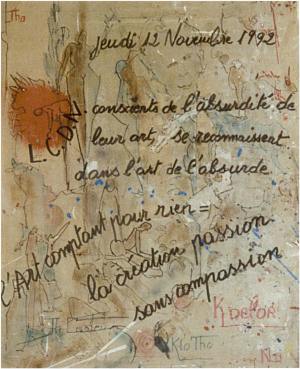 Tho
Jeudi 12 Novembre 1992
L.C.D.N. conscients de l'absurdité de
leur art, se reconnaissent
dans l'art de l'absurde
L'Art comptant pour rien =
la création passion
sans compassion
K DEFOR
Klo Tho